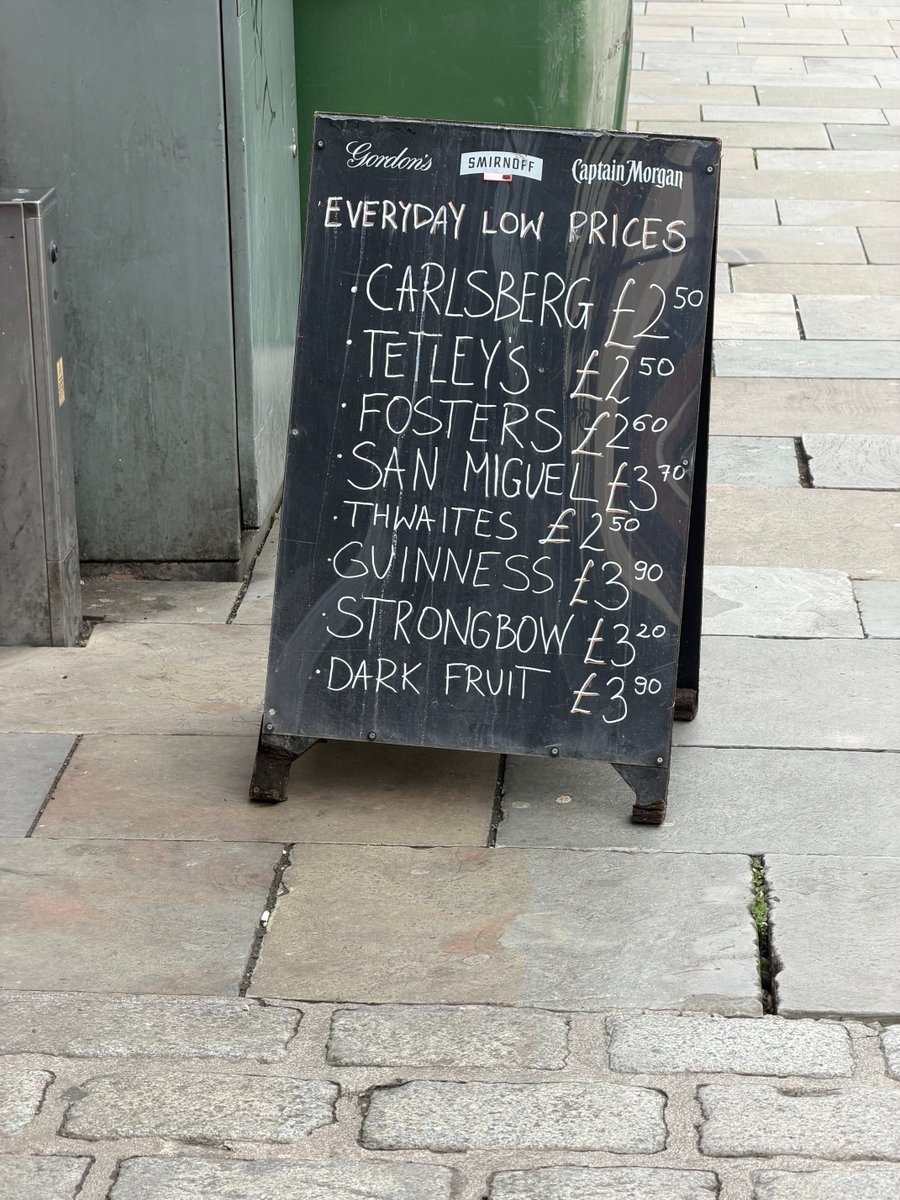 Gordon's SMIRNOFF Captain Morgan
EVERYDAY LOW PRICES
· CARLSBERG £2 50
· TETLEY'S £2 50
· FOSTERS £2 60
· SAN MIGUEL £3 70
· THWAITES £2 50
· GUINNESS £3 90
· STRONGBOW £3 20
· DARK FRUIT £3 90